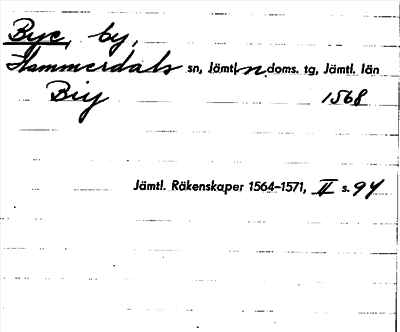 Bye, by,
Hammerdals sn, Jämtl. n doms. tg, Jämtl. län
Biy 1568
Jämtl. Räkenskaper 1564-1571, II s. 94